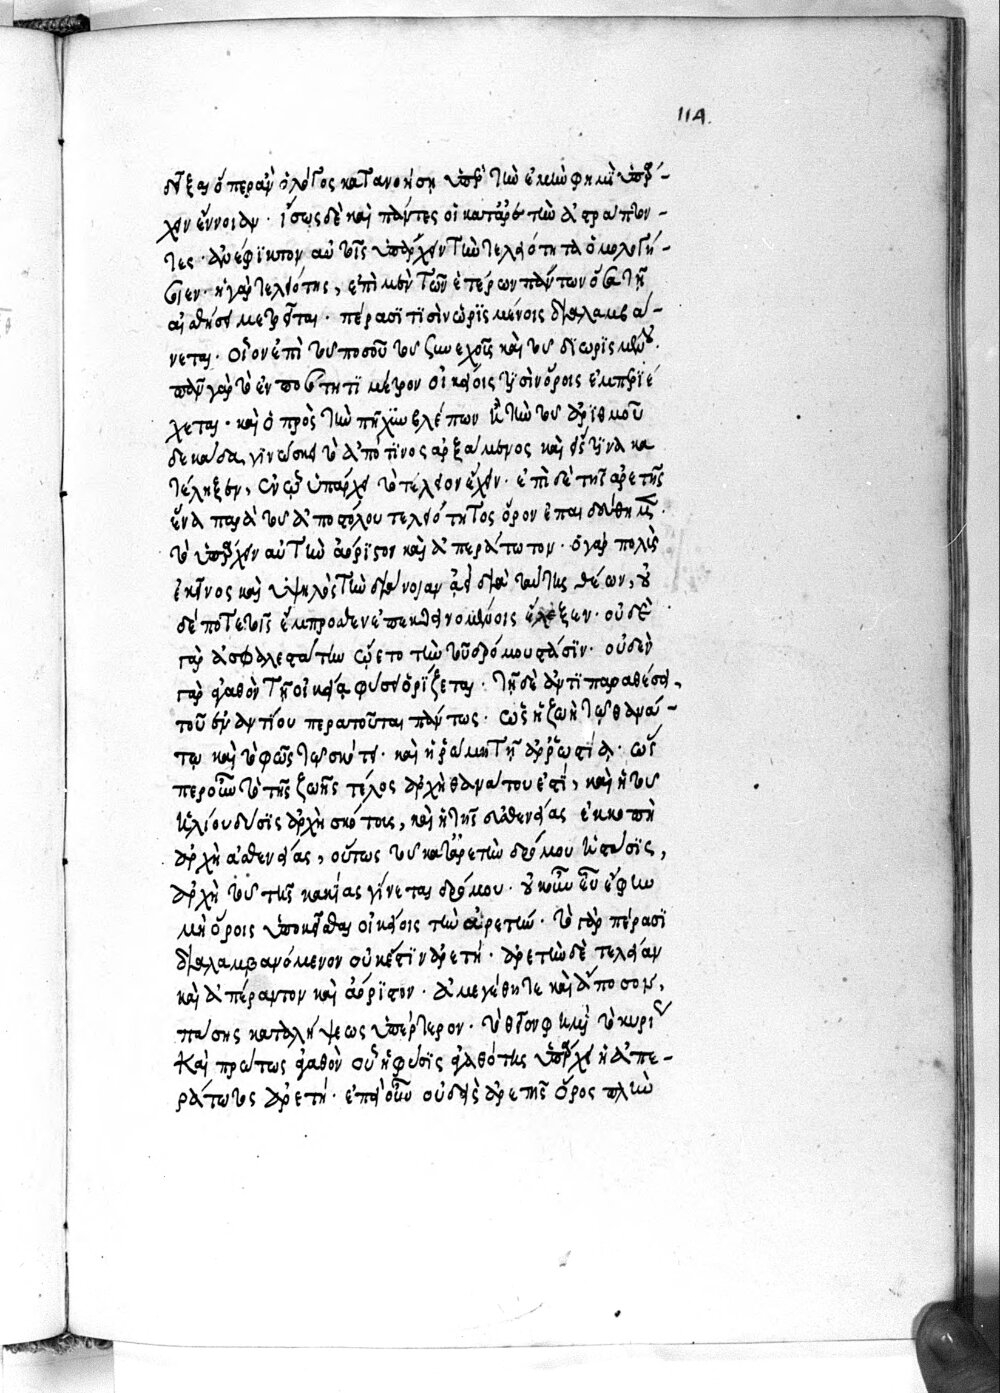 114.
δεῖξαι ὅπερ ἂν ὁ λόγος κατανοήσῃ ὑπὲρ τὴν ἐμὴν φημὶ ὑπάρ-
χειν ἔννοιαν. ἴσως δὲ καὶ πάντες οἱ κατ' ἀρετὴν διαπρέπον-
τες. ἀνέφικτον αὐτοῖς ὑπάρχειν τὴν τελειότητα ὁμολογή-
σειεν. ἡ γὰρ τελειότης, ἐπὶ μὲν τῶν ἑτέρων πάντων ὅσα τῇ
αἰσθήσει μετρεῖται. πέρασί τισιν ὡρισμένοις διαλαμβά-
νεται. οἷον ἐπὶ τοῦ ποσοῦ τοῦ συνεχοῦς καὶ τοῦ διωρισμένου.
πᾶν γὰρ τὸ ἐν ποσότητι μέτρον οἰκείοις τισὶν ὅροις ἐμπεριέ
χεται. καὶ ὁ πρὸς τὴν πῆχυν βλέπων ἢ τὴν τοῦ ἀριθμοῦ
δεκάδα, γινώσκει τὸ ἀπό τινος ἀρξάμενος καὶ εἴς τινα κα
τέληξεν, ἐν ᾧ ὑπάρχει τὸ τέλειον ἔχειν. ἐπὶ δὲ τῆς ἀρετῆς
ἕνα παρὰ τοῦ ἀποστόλου τελειότητος ὅρον ἐπαιδεύθημεν.
τὸ ὑπάρχειν αὐτὴν ἀόριστον καὶ ἀπεράτωτον. ὁ γὰρ πολὺς
ἐκεῖνος καὶ ὑψηλὸς τὴν διάνοιαν ἀεὶ διὰ ταύτης θέων, οὐ
δέποτε τοῖς ἔμπροσθεν ἐπεκτεινόμενος ἔληξεν. οὐδὲ
γὰρ ἀσφαλὲς αὐτῷ ᾤετο τὴν τοῦ δρόμου στάσιν. οὐδὲν
γὰρ ἀγαθὸν τῇ οἰκείᾳ φύσει ὁρίζεται. τῇ δὲ ἀντιπαραθέσει
τοῦ ἐναντίου περατοῦται πάντως. ὡς ἡ ζωὴ τῷ θανά-
τῳ καὶ τὸ φῶς τῷ σκότει. καὶ ἡ ῥώμη τῇ ἀρρωστίᾳ. ὥσ
περ οὖν τὸ τῆς ζωῆς τέλος ἀρχὴ θανάτου ἐστί, καὶ ἡ τοῦ
ἡλίου δύσις ἀρχὴ σκότους, καὶ ἡ τῆς εὐσθενείας ἐκκοπὴ
ἀρχὴ ἀσθενείας, οὕτως τοῦ κατ' ἀρετὴν δρόμου ἡ στάσις,
ἀρχὴ τοῦ τῆς κακίας γίνεται δρόμου. οὐκοῦν εὖ ἔφην
μὴ ὅροις ὑποκεῖσθαι οἰκείοις τὴν ἀρετήν. τὸ γὰρ πέρασι
διαλαμβανόμενον οὐκ ἔστιν ἀρετή. ἀρετὴν δὲ τελείαν
καὶ ἀπέραντον καὶ ἀόριστον. ἀμεγέθη τε καὶ ἄποσον,
πάσης καταλήψεως ὑπέρτερον. τὸ θεῖον φημὶ τὸ κυρί
καὶ πρώτως ἀγαθὸν οὗ ἡ φύσις ἀγαθότης ὑπάρχει ἡ ἀπε-
ράτωτος ἀρετή. ἐπεὶ οὖν οὐδεὶς ἀρετῆς ὅρος πλὴν